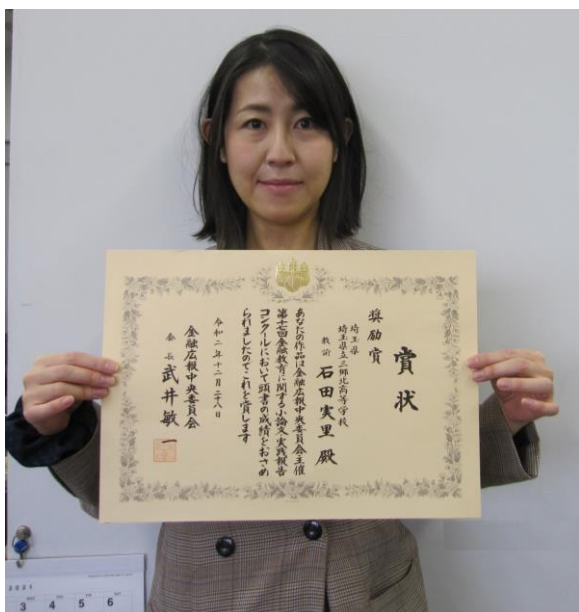 賞状
奨励賞
埼玉県
埼玉県立三郷北高等学校
教諭 石田実里 殿
あなたの作品は金融広報中央委員会主催
第十七回金融教育に関する小論文・実践報告
コンクールにおいて頭書の成績をおさめ
られましたのでこれを賞します
令和二年十二月二十八日
金融広報中央委員会
会長 武井敏一
2021
3 4 5 6